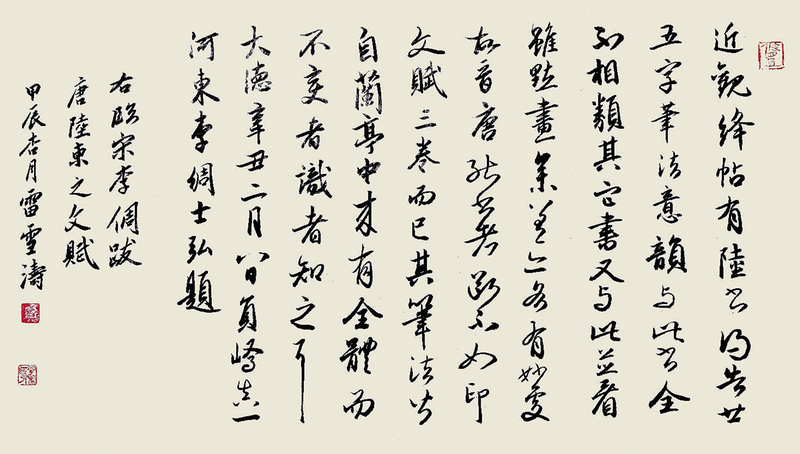 近觀絳帖有陸书得告廿
五字筆法意韻与此书全
不相類其它書又与此並看
雖點畫參差亦各有妙處
故晉唐能书者斷不如印
文賦三卷而已其筆法皆
自蘭亭中来有全體而
不变者識者知之耳
大德辛丑二月八日員嶠真一
河東李倜士弘題
右臨宋李倜跋
唐陸東之文賦
甲辰杏月雷雪濤